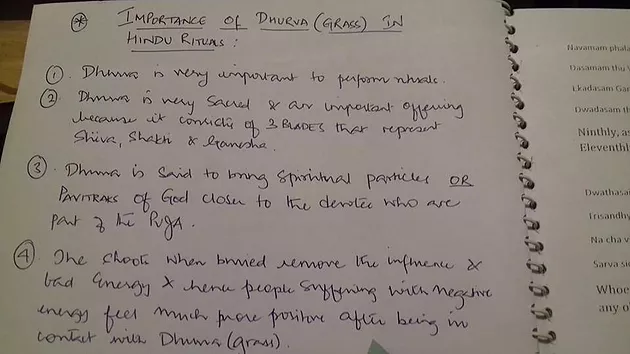 * IMPORTANCE OF DHURVA (GRASS) IN
HINDU RITUALS:
① Dhurva is very important to perform rituals.
② Dhurva is very sacred & an important offering
because it consists of 3 BLADES that represent
Shiva, Shakti & Ganesha.
③ Dhurva is said to bring spiritual particles OR
PAVITRAKS of God closer to the devotee who are
part of the PUJA.
④ The shoots when buried remove the influence &
bad energy & hence people suffering with negative
energy feel much more positive after being in
contact with Dhurva (grass).
Navamam phala
Dasamam thu
Ekadasam Gan
Dwadasam th
Ninthly, as
Eleventhl
Dwathasa
Trisandhy
Na cha v
Sarva si
Whoe
any o